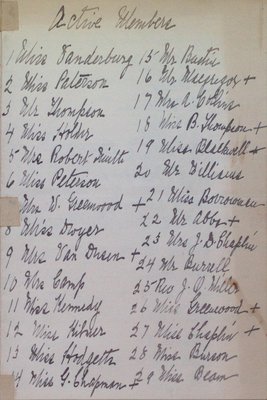 Active Members
1 Miss Vanderburg
2 Miss Paterson
3 Mr Thompson
4 Miss Holder
5 Mrs Robert Smith
6 Miss Peterson
Mrs W. Greenwood +
8 Miss Dwyer
9 Mrs Van Dusen +
10 Mrs Camp
11 Miss Kennedy
12 Miss Kilner
13 Miss Hodgetts
14 Miss G. Chapman +
15 Mr Bustin
16 Mr Macgregor +
17 Mrs Collins
18 Miss B. Thompson +
19 Miss Blackwell +
20 Mr Williams
21 Miss Borrowman
22 Mr Abbs +
23 Mrs J. D. Chaplin
24 Mr Burrell
25 Rev J. Q. Miller
26 Miss Greenwood +
27 Miss Chaplin +
28 Miss Burson
29 Miss Beam